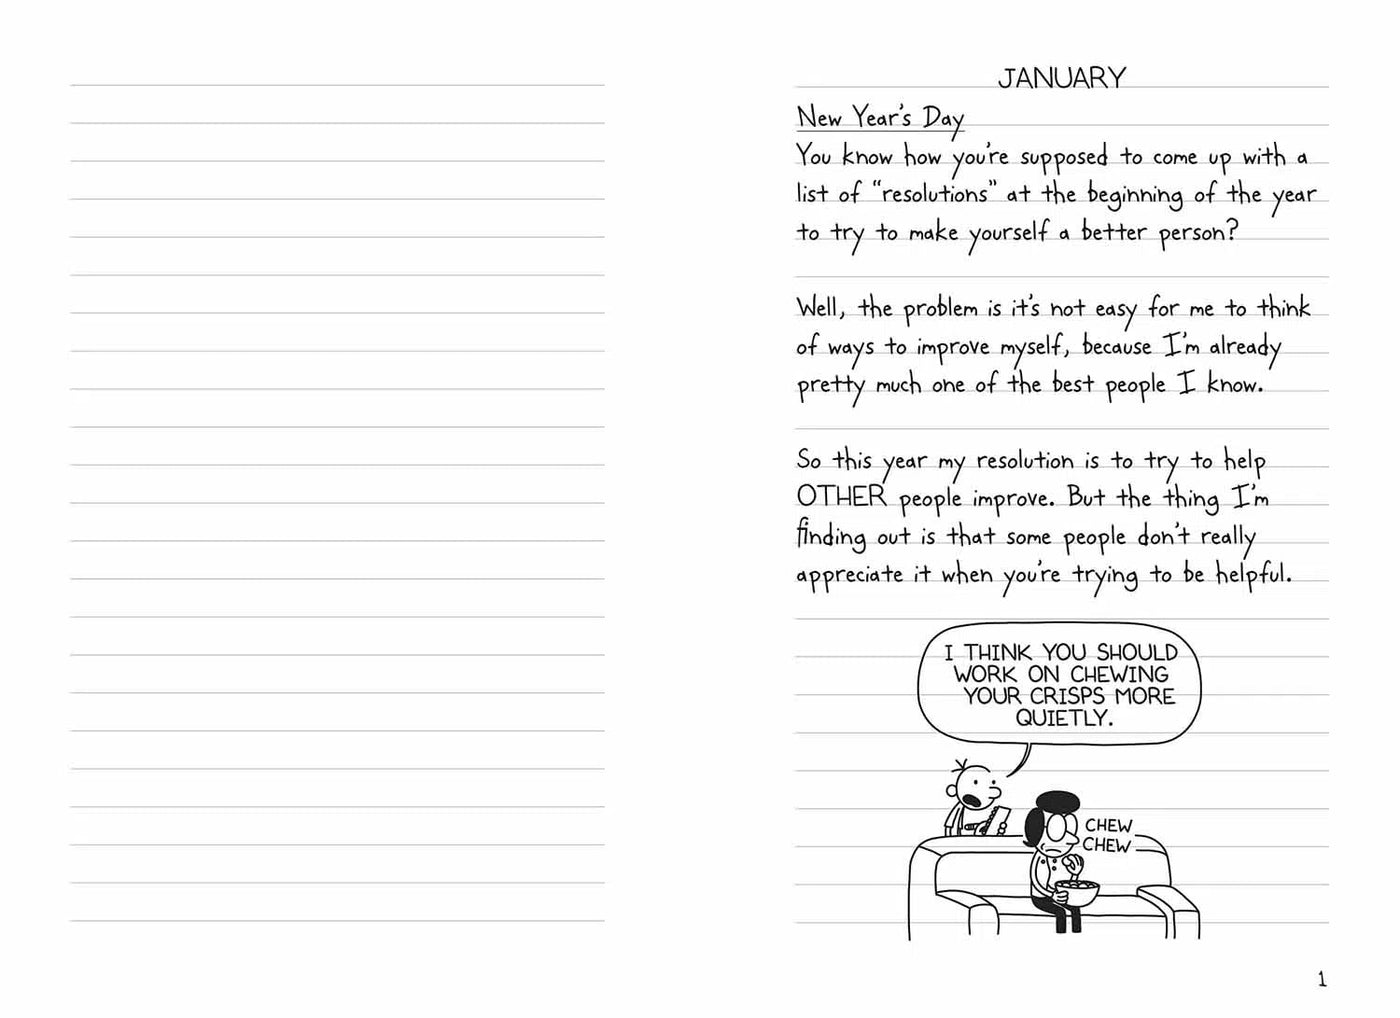 JANUARY
New Year's Day
You know how you're supposed to come up with a
list of “resolutions” at the beginning of the year
to try to make yourself a better person?
Well, the problem is it's not easy for me to think
of ways to improve myself, because I'm already
pretty much one of the best people I know.
So this year my resolution is to try to help
OTHER people improve. But the thing I'm
finding out is that some people don't really
appreciate it when you're trying to be helpful.
I THINK YOU SHOULD
WORK ON CHEWING
YOUR CRISPS MORE
QUIETLY.
CHEW
CHEW
1